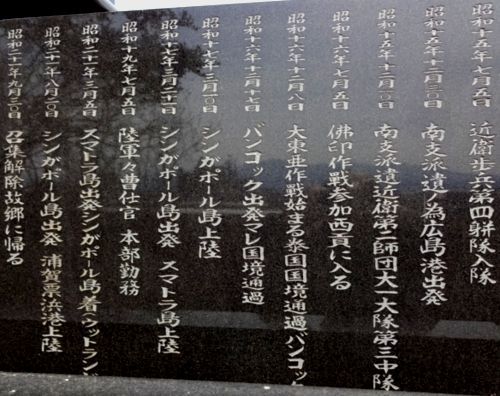 昭和十五年三月五日 近衛歩兵第四聯隊入隊
昭和十五年十二月一日 南支派遣ノ為広島港出発
昭和十五年十二月五日 南支派遣近衛第二師団大一大隊第三中隊
昭和十六年七月五日 佛印作戦参加西貢に入る
昭和十六年十二月八日 大東亜作戦始まる泰国国境通過バンコック
昭和十六年十二月十七日 バンコック出発マレ国境通過
昭和十七年二月一〇日 シンガポール島上陸
昭和十七年三月二十一日 シンガポール島出発 スマトラ島上陸
昭和十九年七月五日 陸軍々曹仕官 本部勤務
昭和二十一年三月五日 スマトラ島出発シンガポール島着ウットランド
昭和二十一年八月二〇日 シンガポール島出発 浦賀票浜港上陸
昭和二十一年九月三〇日 召集解除故郷に帰る